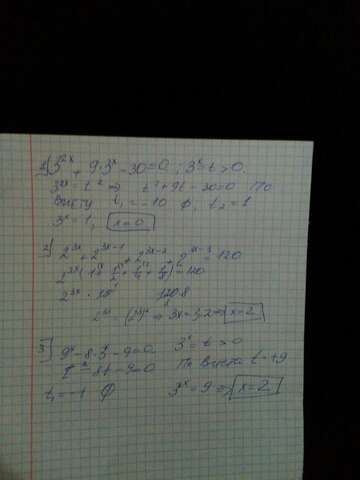 1) 3^2x + 9·3^x - 30 = 0; 3^x = t > 0.
3^2x = t^2 ⇒ t^2 + 9t - 30 = 0 По
Виету t₁ = -10 ∅, t₂ = 1
3^x = 1, x = 0
2) 2^3x + 2^3x-1 + 2^3x-2 + 2^3x-3 = 120
2^3x = 120
2^3x · 15 120·8
⇒ 3x = ⇒ x = 2
3) 9^x - 8·3^x - 9 = 0. 3^x = t > 0
t^2 - 8t - 9 = 0 По Виета t = +9
t₁ = -1 ∅ 3^x = 9 ⇒ x = 2